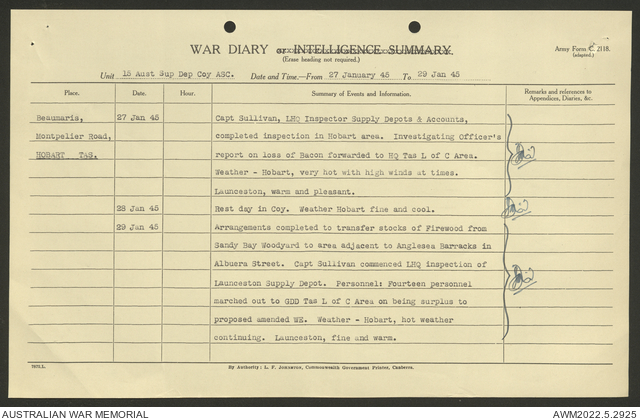 WAR DIARY or INTELLIGENCE SUMMARY.
(Erase heading not required.)
Army Form C. 2118.
(adapted.)
Unit 15 Aust Sup Dep Coy ASC. Date and Time.—From 27 January 45 To 29 Jan 45
Place. Date. Hour. Summary of Events and Information. Remarks and references to Appendices, Diaries, &c.
Beaumaris, 27 Jan 45 Capt Sullivan, LHQ Inspector Supply Depots & Accounts,
Montpelier Road, completed inspection in Hobart area. Investigating Officer's
HOBART TAS. report on loss of Bacon forwarded to HQ Tas L of C Area.
Weather - Hobart, very hot with high winds at times.
Launceston, warm and pleasant.
28 Jan 45 Rest day in Coy. Weather Hobart fine and cool.
29 Jan 45 Arrangements completed to transfer stocks of Firewood from
Sandy Bay Woodyard to area adjacent to Anglesea Barracks in
Albuera Street. Capt Sullivan commenced LHQ inspection of
Launceston Supply Depot. Personnel: Fourteen personnel
marched out to GDD Tas L of C Area on being surplus to
proposed amended WE. Weather - Hobart, hot weather
continuing. Launceston, fine and warm.
By Authority: L. F. Johnston, Commonwealth Government Printer, Canberra.
AUSTRALIAN WAR MEMORIAL AWM2022.5.2925